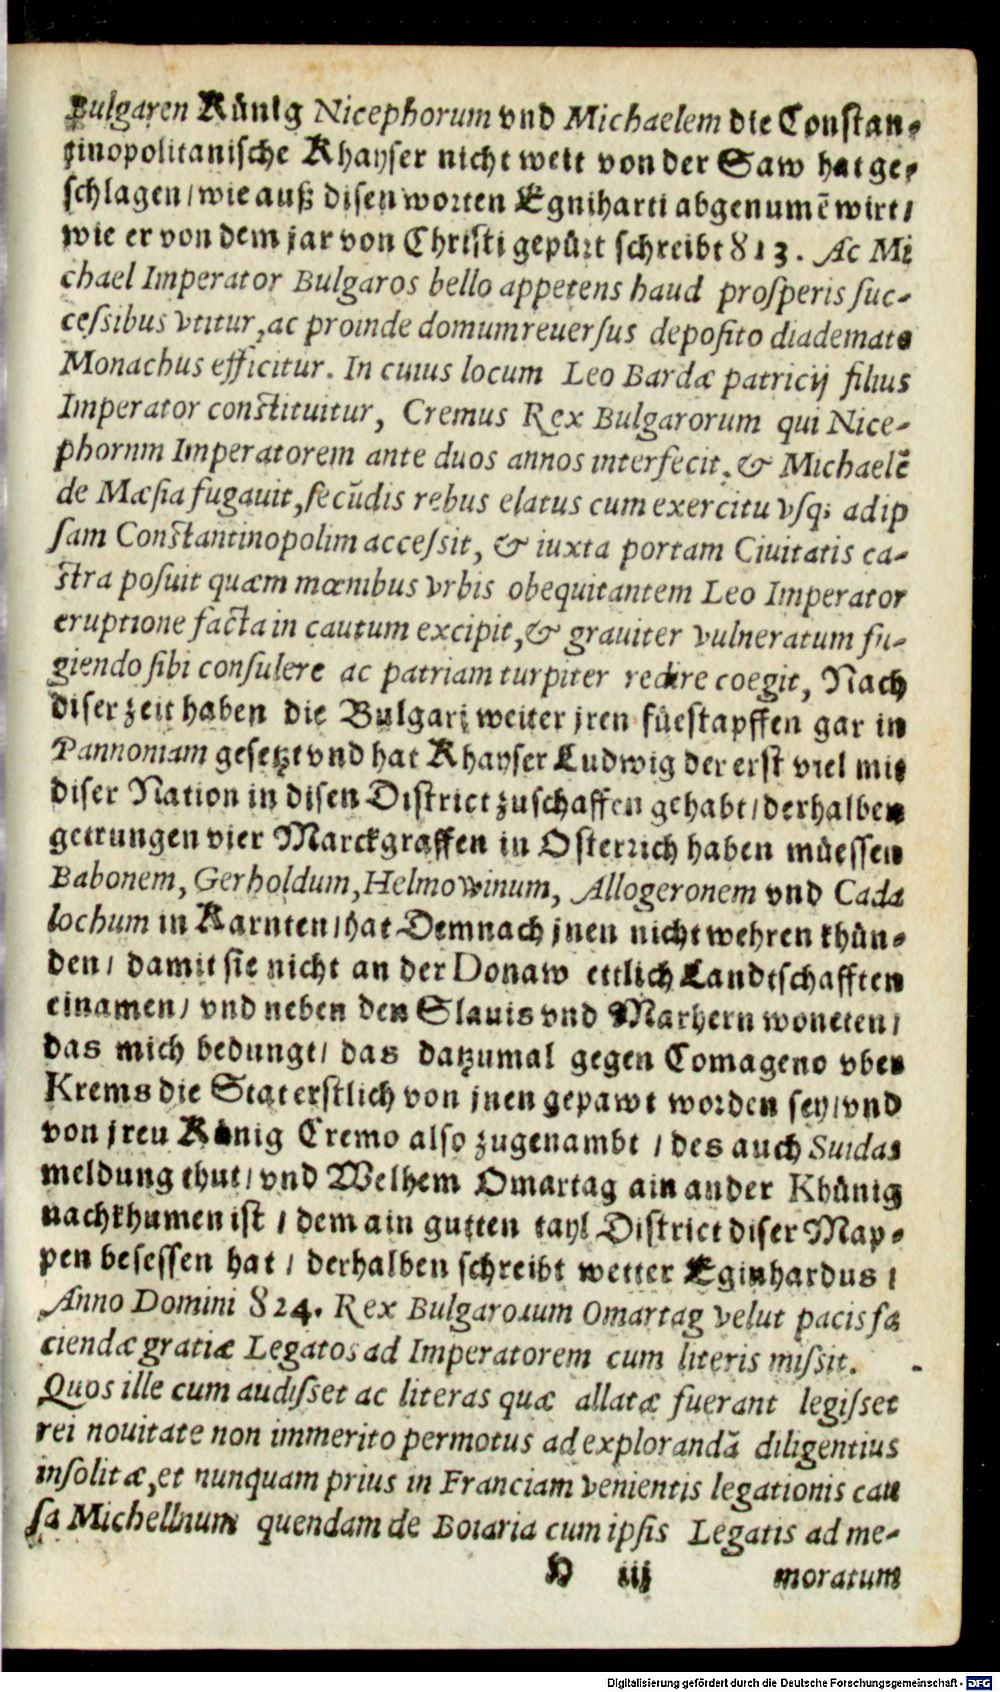 Bulgaren Künig Nicephorum vnd Michaelem die Constan-
tinopolitanische Khayser nicht weit von der Saw hat ge-
schlagen / wie auß disen worten Egniharti abgenumē wirt /
wie er von dem jar von Christi gepürt schreibt 813. Ac Mi
chael Imperator Bulgaros bello appetens haud prosperis suc-
cessibus vtitur, ac proinde domum reuersus deposito diademate
Monachus efficitur. In cuius locum Leo Bardæ patricij filius
Imperator constituitur, Cremus Rex Bulgarorum qui Nice-
phornm Imperatorem ante duos annos interfecit. & Michaelē
de Mæsia fugauit, secūdis rebus elatus cum exercitu vsq; ad ip
sam Constantinopolim accessit, & iuxta portam Ciuitatis ca-
stra posuit quæm mœnibus vrbis obequitantem Leo Imperator
eruptione facta in cautum excipit, & grauiter vulneratum fu-
giendo sibi consulere ac patriam turpiter redire coegit, Nach
diser zeit haben die Bulgari weiter jren füestapffen gar in
Pannoniam gesetzt vnd hat Khayser Ludwig der erst viel mit
diser Nation in disen District zuschaffen gehabt / derhalben
getrungen vier Marckgraffen in Osterrich haben müessen
Babonem, Gerholdum, Helmowinum, Allogeronem vnd Cada
lochum in Karnten / hat Demnach jnen nicht wehren khün-
den / damit sie nicht an der Donaw ettlich Landtschafften
einamen / vnd neben den Slauis vnd Marhern woneten /
das mich bedungt / das datzumal gegen Comageno vber
Krems die Stat erstlich von jnen gepawt worden sey / vnd
von jreu König Cremo also zugenambt / des auch Suidas
meldung thut / vnd Welhem Omartag ain ander Khünig
nachkhumen ist / dem ain gutten tayl District diser Map-
pen besessen hat / derhalben schreibt weiter Eginhardus /
Anno Domini 824. Rex Bulgarorum Omartag velut pacis fa
ciendæ gratiæ Legatos ad Imperatorem cum literis missit.
Quos ille cum audisset ac literas quæ allatæ fuerant legisset
rei nouitate non immerito permotus ad explorandā diligentius
insolitæ, et nunquam prius in Franciam venientis legationis cau
sa Michellnum quendam de Boiaria cum ipsis Legatis ad me-
H iij moratum
Digitalisierung gefördert durch die Deutsche Forschungsgemeinschaft - DFG